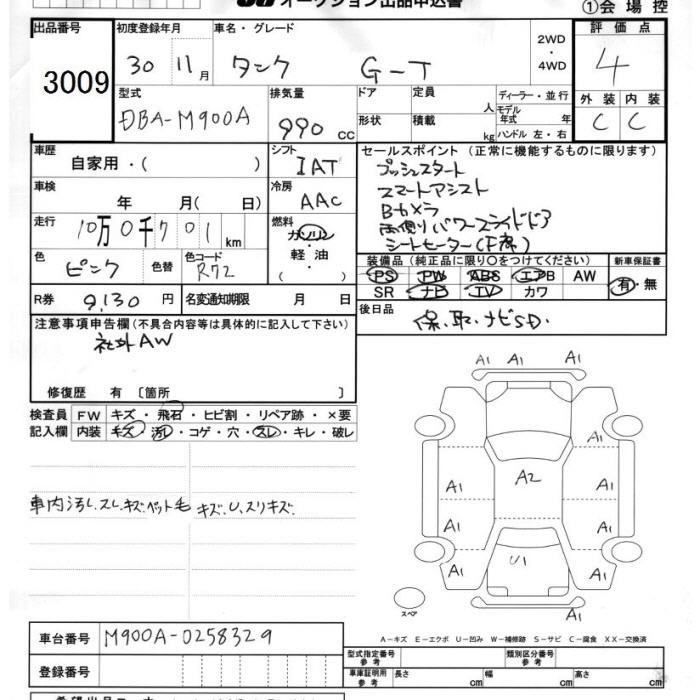 オークション出品申込書 ①会 場 控
出品番号 3009
初度登録年月 30 11月
車名・グレード タンク G-T
2WD・4WD
評価点 4
外装 内装
C C
型式 DBA-M900A
排気量 990 cc
ドア 定員 人
形状 積載 kg
ディーラー・並行
モデル年式 年
ハンドル 左・右
車歴 自家用・( )
シフト IAT
車検 年 月( 日)
冷房 AAC
走行 10万0千701km
燃料 ガソリン・軽油・( )
色 ピンク 色替 色コード R72
R券 9,130円 名変通知期限 月 日
セールスポイント (正常に機能するものに限ります)
プッシュスタート
スマートアシスト
Bカメラ
両側パワースライドドア
シートヒーター(F席)
装備品 (純正品に限り○をつけてください) 新車保証書
PS PW ABS エアB AW
SR ナビ TV カワ
有・無
後日品 保、取、ナビSD
注意事項申告欄(不具合内容等は具体的に記入して下さい)
社外AW
修復歴 有 〔箇所 〕
検査員 FW キズ・飛石・ヒビ割・リペア跡・×要
記入欄 内装 キズ・汚レ・コゲ・穴・スレ・キレ・破レ
車内汚レ、スレ、キズ、ペット毛 キズ、U、スリキズ
A1 A1 A1
A1
A1 A2 A1
A1 A1
A1 U1 A1
A1
スペア
A-キズ E-エクボ U-凹み W-補修跡 S-サビ C-腐食 XX-交換済
車台番号 M900A-0258329
登録番号
型式指定番号 参考 類別区分番号 参考
車庫証明用 参考 長さ cm 幅 cm 高さ cm